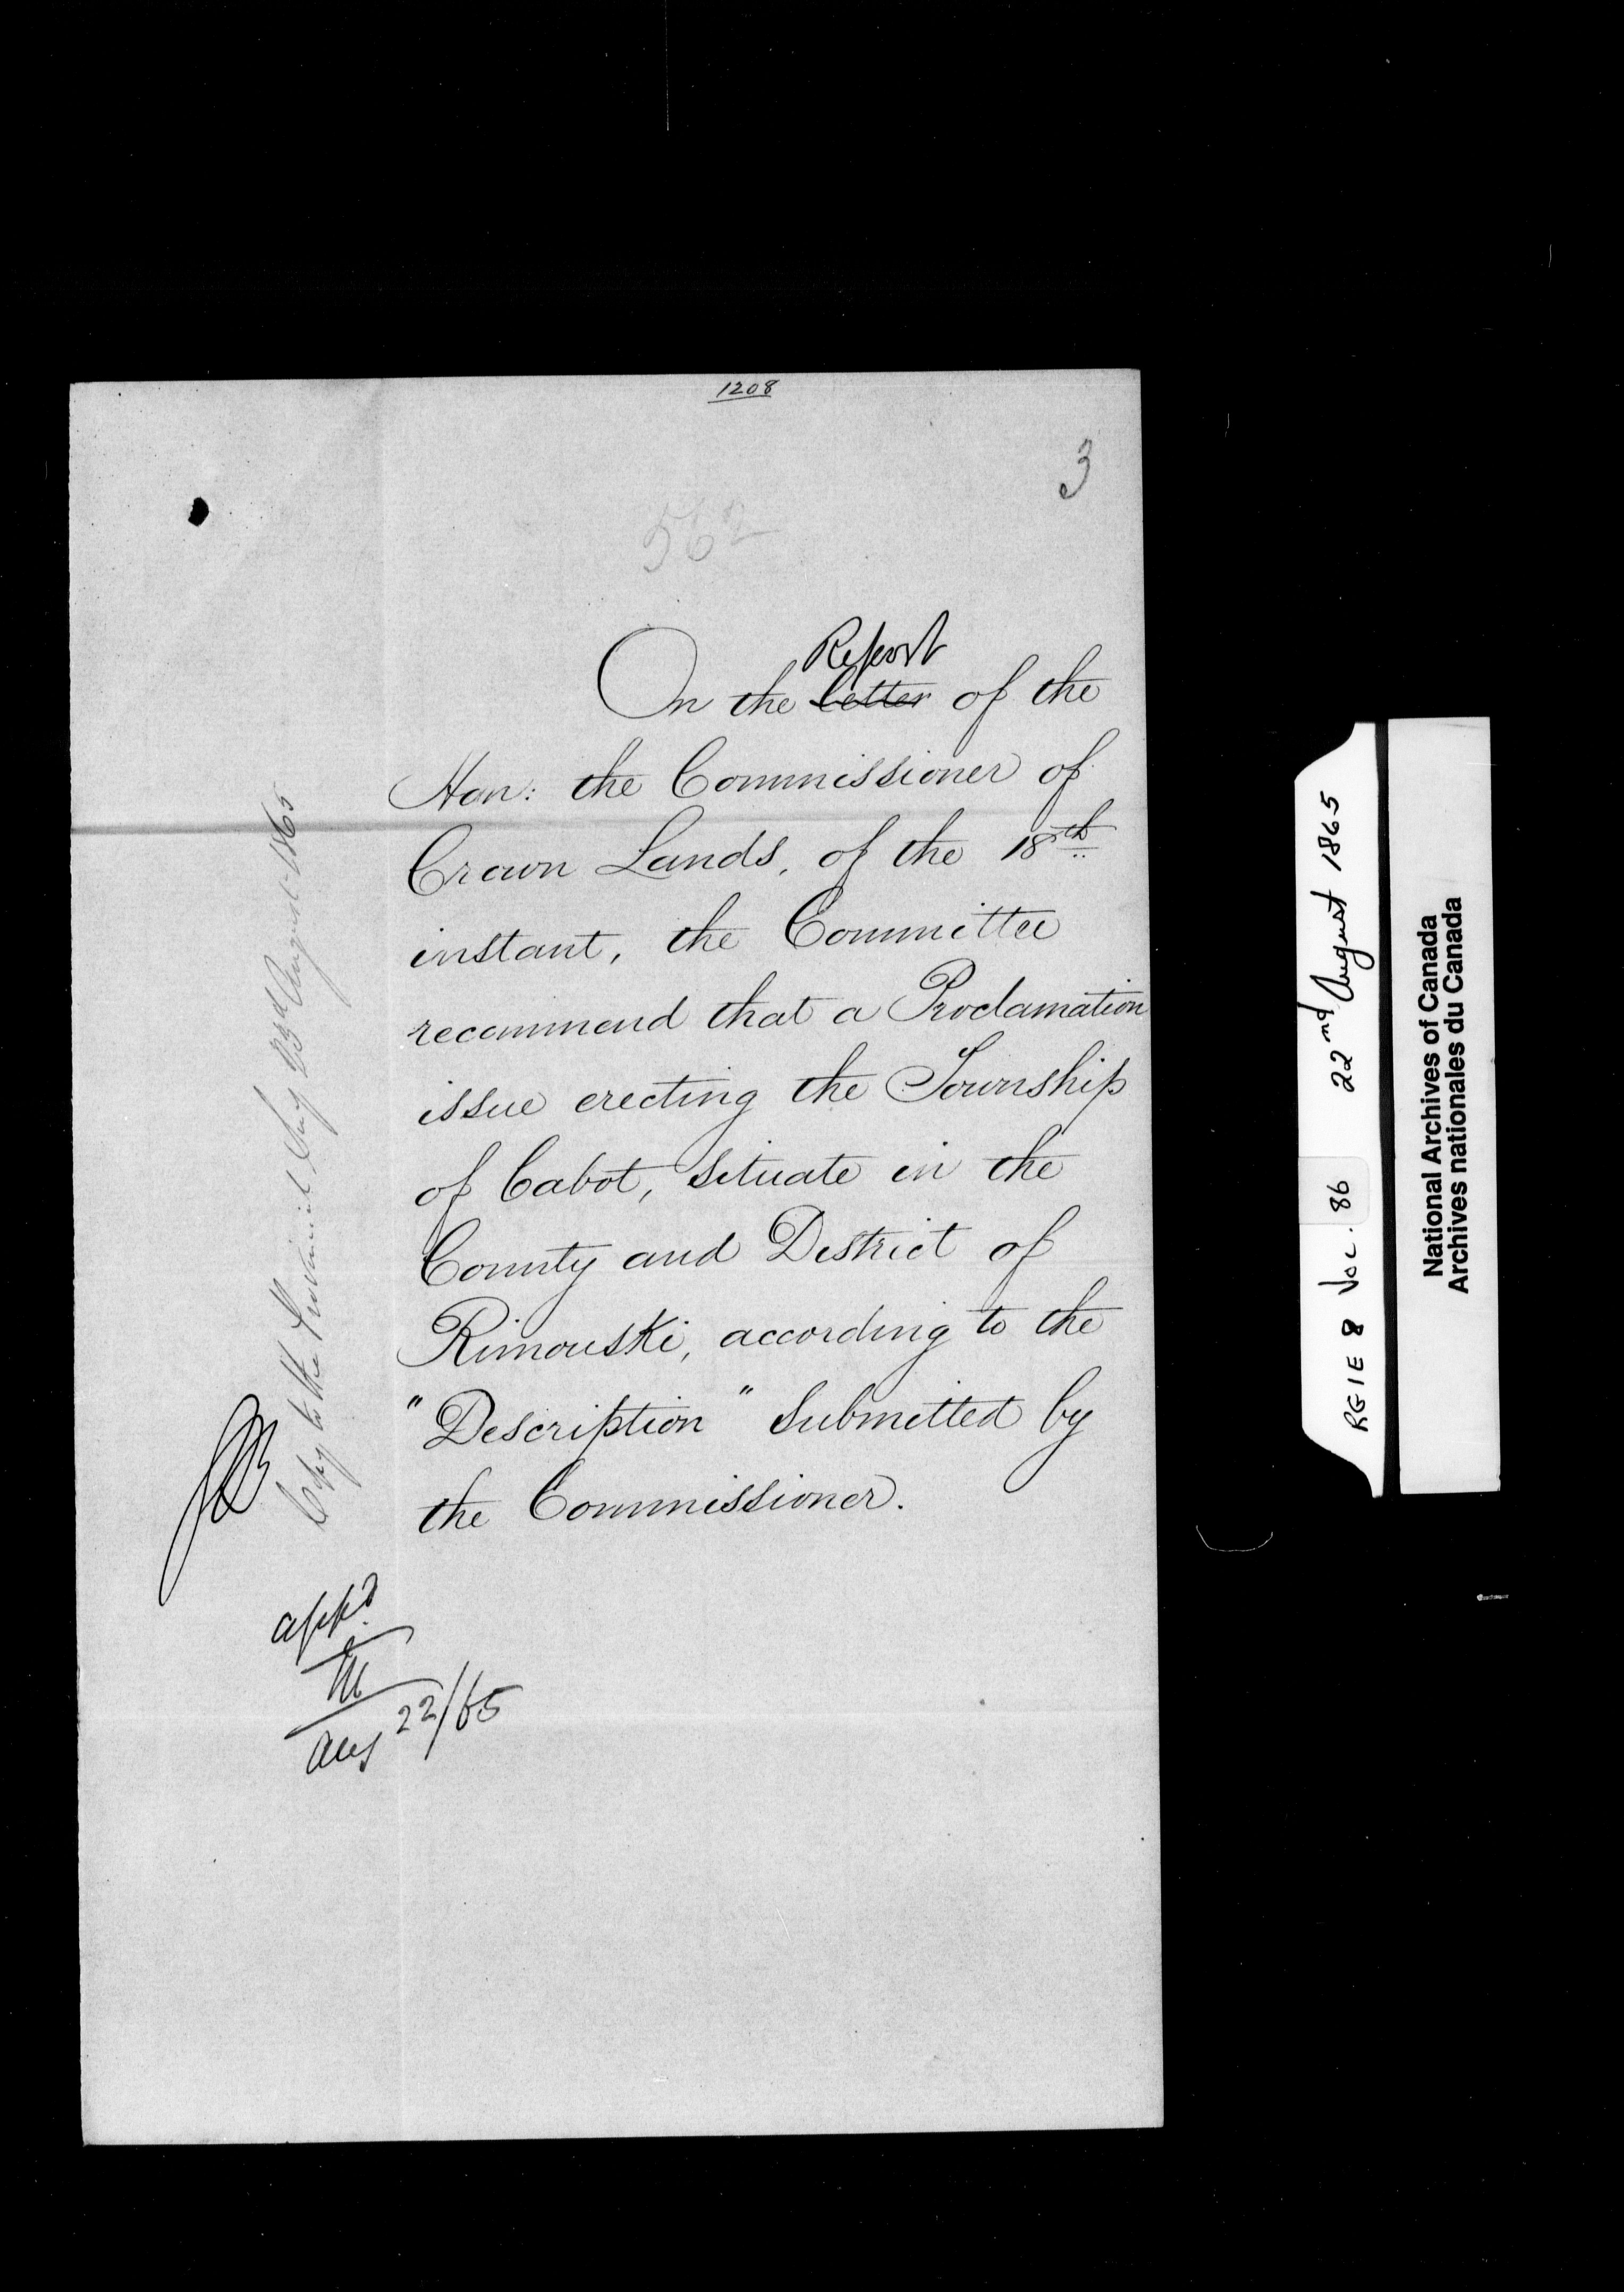 1208
3
562
Report
On the letter of the
Hon: the Commissioner of
Crown Lands, of the 18th
instant, the Committee
recommend that a Proclamation
issue erecting the Township
of Cabot, situate in the
County and District of
Rimouski, according to the
"Description" Submitted by
the Commissioner.
Copy to the Provincial Secy 23rd August 1865
appd
M
Aug 22/65
RG1E8 Vol. 86 22nd August 1865
National Archives of Canada
Archives nationales du Canada